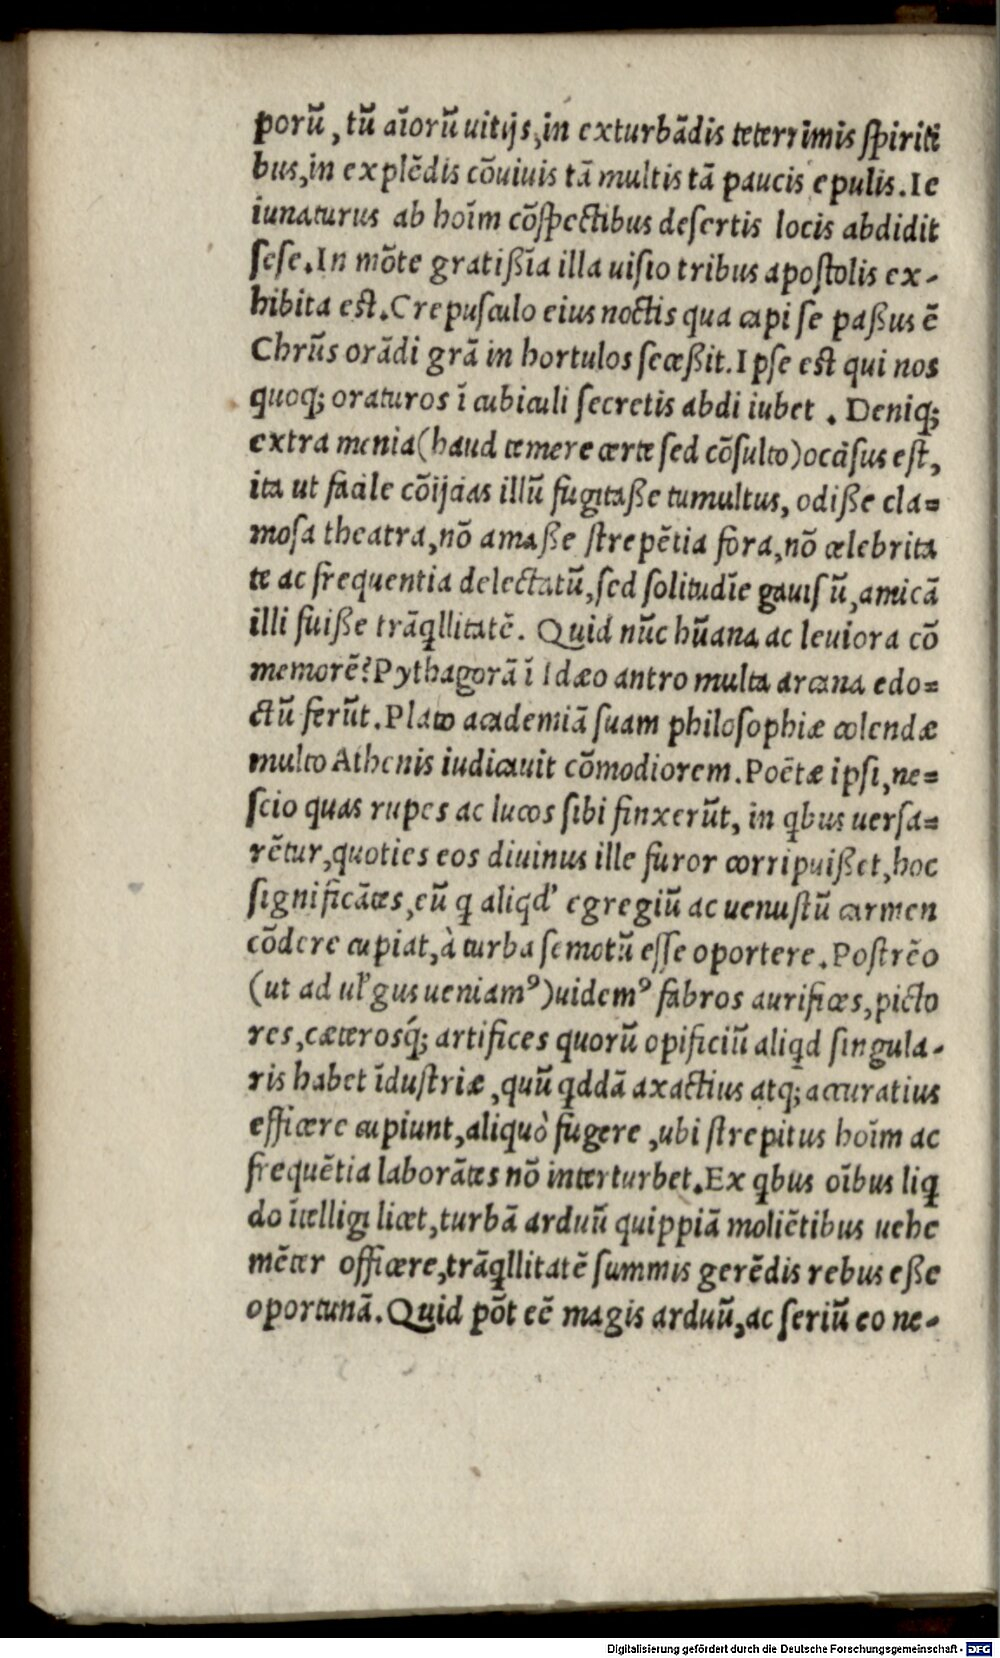 porū, tū aīorū uitijs, in exturbādis teterrimis spiriti
bus, in explēdis cōuiuis tā multis tā paucis epulis. Ie
iunaturus ab hoīm cōspectibus desertis locis abdidit
sese. In mōte gratißīa illa uisio tribus apostolis ex-
hibita est. Crepusculo eius noctis qua capi se paßus ē
Chrūs orādi grā in hortulos seceßit. Ipse est qui nos
quoq; oraturos ī cubiculi secretis abdi iubet. Deniq;
extra menia (haud temere certe sed cōsulto) occisus est,
ita ut facile cōijcias illū fugitaße tumultus, odiße cla=
mosa theatra, nō amaße strepētia fora, nō celebrita
te ac frequentia delectatū, sed solitudīe gauisū, amicā
illi fuiße trāqllitatē. Quid nūc hūana ac leuiora cō
memorē? Pythagorā ī Idæo antro multa arcana edo=
ctū ferūt. Plato academiā suam philosophiæ colendæ
multo Athenis iudicauit cōmodiorem. Poētæ ipsi, ne=
scio quas rupes ac lucos sibi finxerūt, in qbus uersa=
rētur, quoties eos diuinus ille furor corripuißet, hoc
significātes, eū q aliqd' egregiū ac uenustū carmen
cōdere cupiat, à turba semotū esse oportere. Postrēo
(ut ad ul'gus ueniamꝰ) uidemꝰ fabros aurifices, picto
res, cæterosq́; artifices quorū opificiū aliqd singula-
ris habet īdustriæ, quū qddā axactius atq; accuratius
efficere cupiunt, aliquò fugere, ubi strepitus hoīm ac
frequētia laborātes nō interturbet. Ex qbus oībus liq
do ītelligi licet, turbā arduū quippiā moliētibus uehe
mēter officere, trāqllitatē summis gerēdis rebus eße
oportunā. Quid pōt eē magis arduū, ac seriū eo ne-
Digitalisierung gefördert durch die Deutsche Forschungsgemeinschaft - DFG